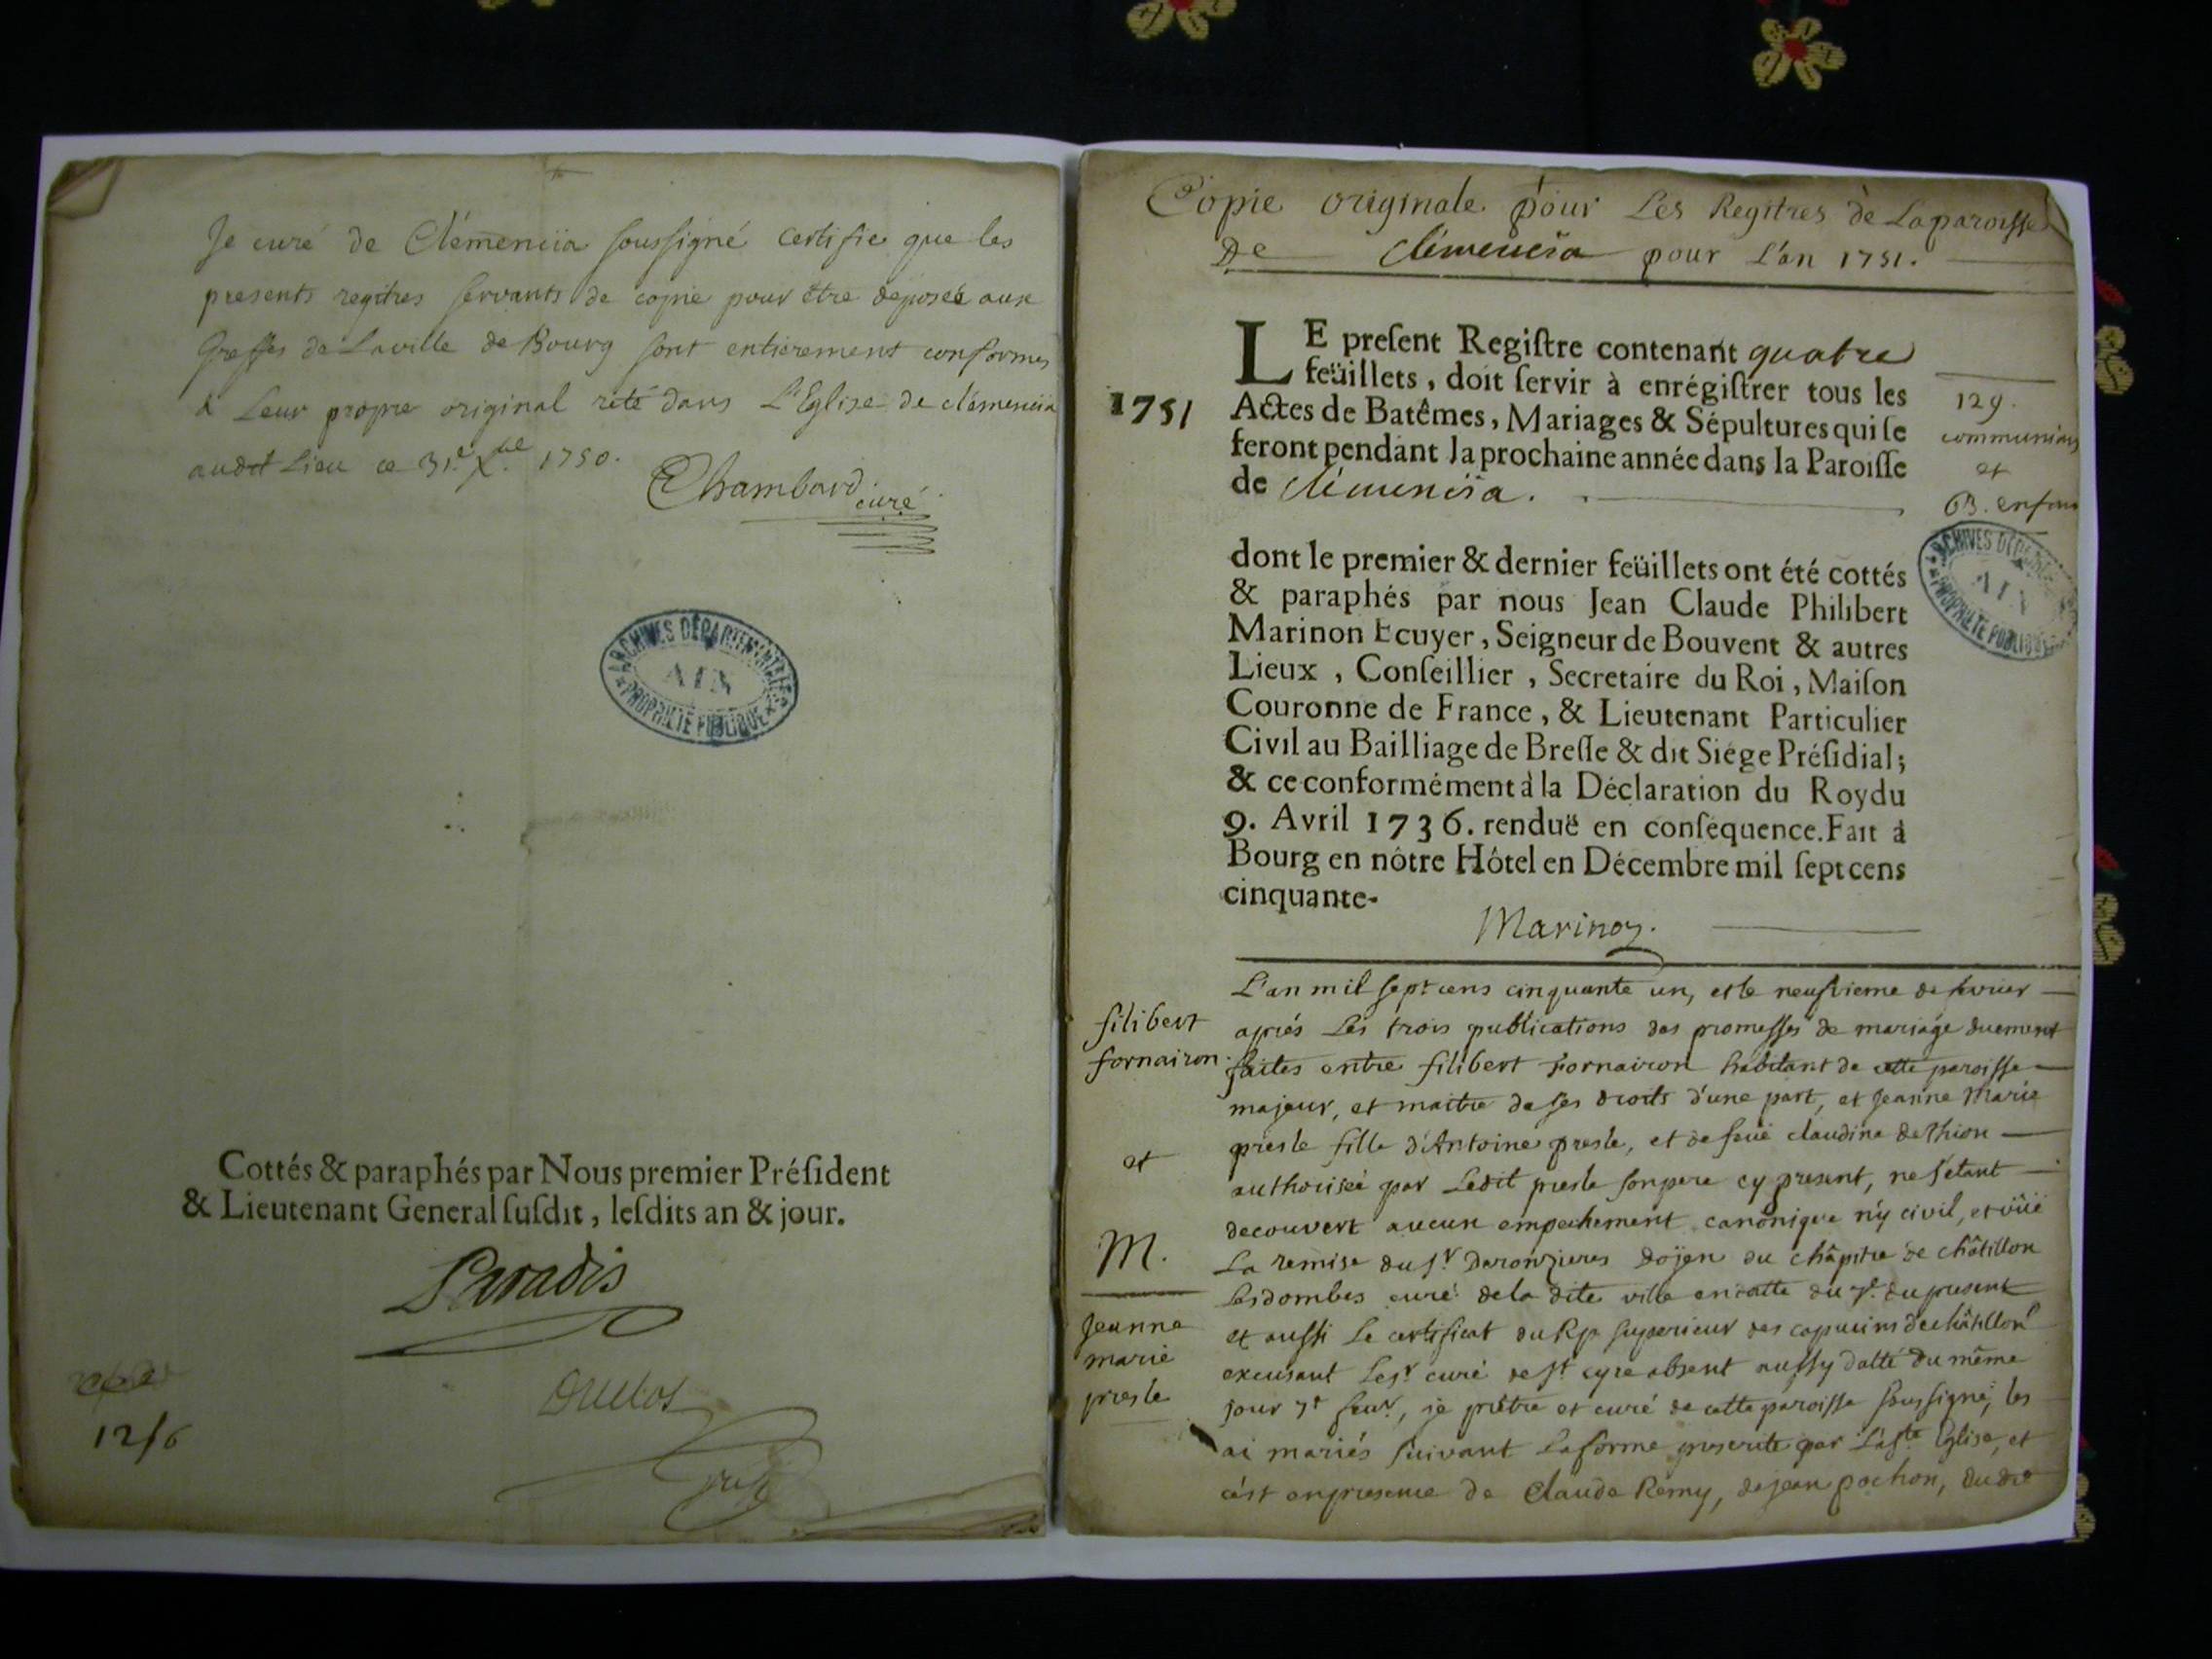 Je curé de Clémenciia soussigné certifie que les
presents regitres servants de copie pour être deposéé aux
Greffes de Laville de Bourg sont entierement conformes
à Leur propre original resté dans L'Eglise de clémenciia
audit Lieu ce 31.e x.bre 1750.
Chambard
curé
ARCHIVES DÉPARTEMENTALES
AIN
PROPRIÉTÉ PUBLIQUE
Cottés & paraphés par Nous premier Préſident
& Lieutenant General ſuſdit, leſdits an & jour.
Paradis
Duclos
12/6
Copie originale pour Les Regitres de Laparoisse
De clémenciia pour L'an 1751.
1751
LE preſent Regiſtre contenant quatre
feüillets, doit ſervir à enrégiſtrer tous les
Actes de Batêmes, Mariages & Sépultures qui ſe
feront pendant la prochaine année dans la Paroiſſe
de clémenciia.
129.
communians
et
63. enfans
ARCHIVES DÉPARTEMENTALES
AIN
PROPRIÉTÉ PUBLIQUE
dont le premier & dernier feüillets ont été cottés
& paraphés par nous Jean Claude Philibert
Marinon Ecuyer, Seigneur de Bouvent & autres
Lieux, Conſeillier, Secretaire du Roi, Maiſon
Couronne de France, & Lieutenant Particulier
Civil au Bailliage de Breſſe & dit Siége Préſidial;
& ce conformément à la Déclaration du Roy du
9. Avril 1736. renduë en conſéquence. Fait à
Bourg en nôtre Hôtel en Décembre mil ſept cens
cinquante-
Marinon.
filibert
fornairon
et
M.
Jeanne
marie
presle
L'an mil sept cens cinquante un, et le neufvieme de fevrier
aprés Les trois publications des promesses de mariage duement
faites entre filibert fornairon habitant de cette paroisse
majeur, et maitre de ses droits d'une part, et Jeanne Marie
presle fille d'Antoine presle, et de feüe claudine dethion
authorisée par Ledit presle son pere cy present, ne s'etant
decouvert aucun empechement canonique n'y civil, et vüe
La remise du sr Daronzieres Doÿen du châpitre de châtillon
Lesdombes curé de la dite ville en datte du 7.e du present
et aussi le certificat du Rp superieur des capucins de châtillon
excusant Le sr curé de st cyre absent aussy datté du même
jour 7e fevr, je prêtre et curé de cette paroisse soussigné, les
ai mariés suivant La forme prescrite par La ste Eglise, et
c'est en presence de Claude Remy, de jean pochon, du dit